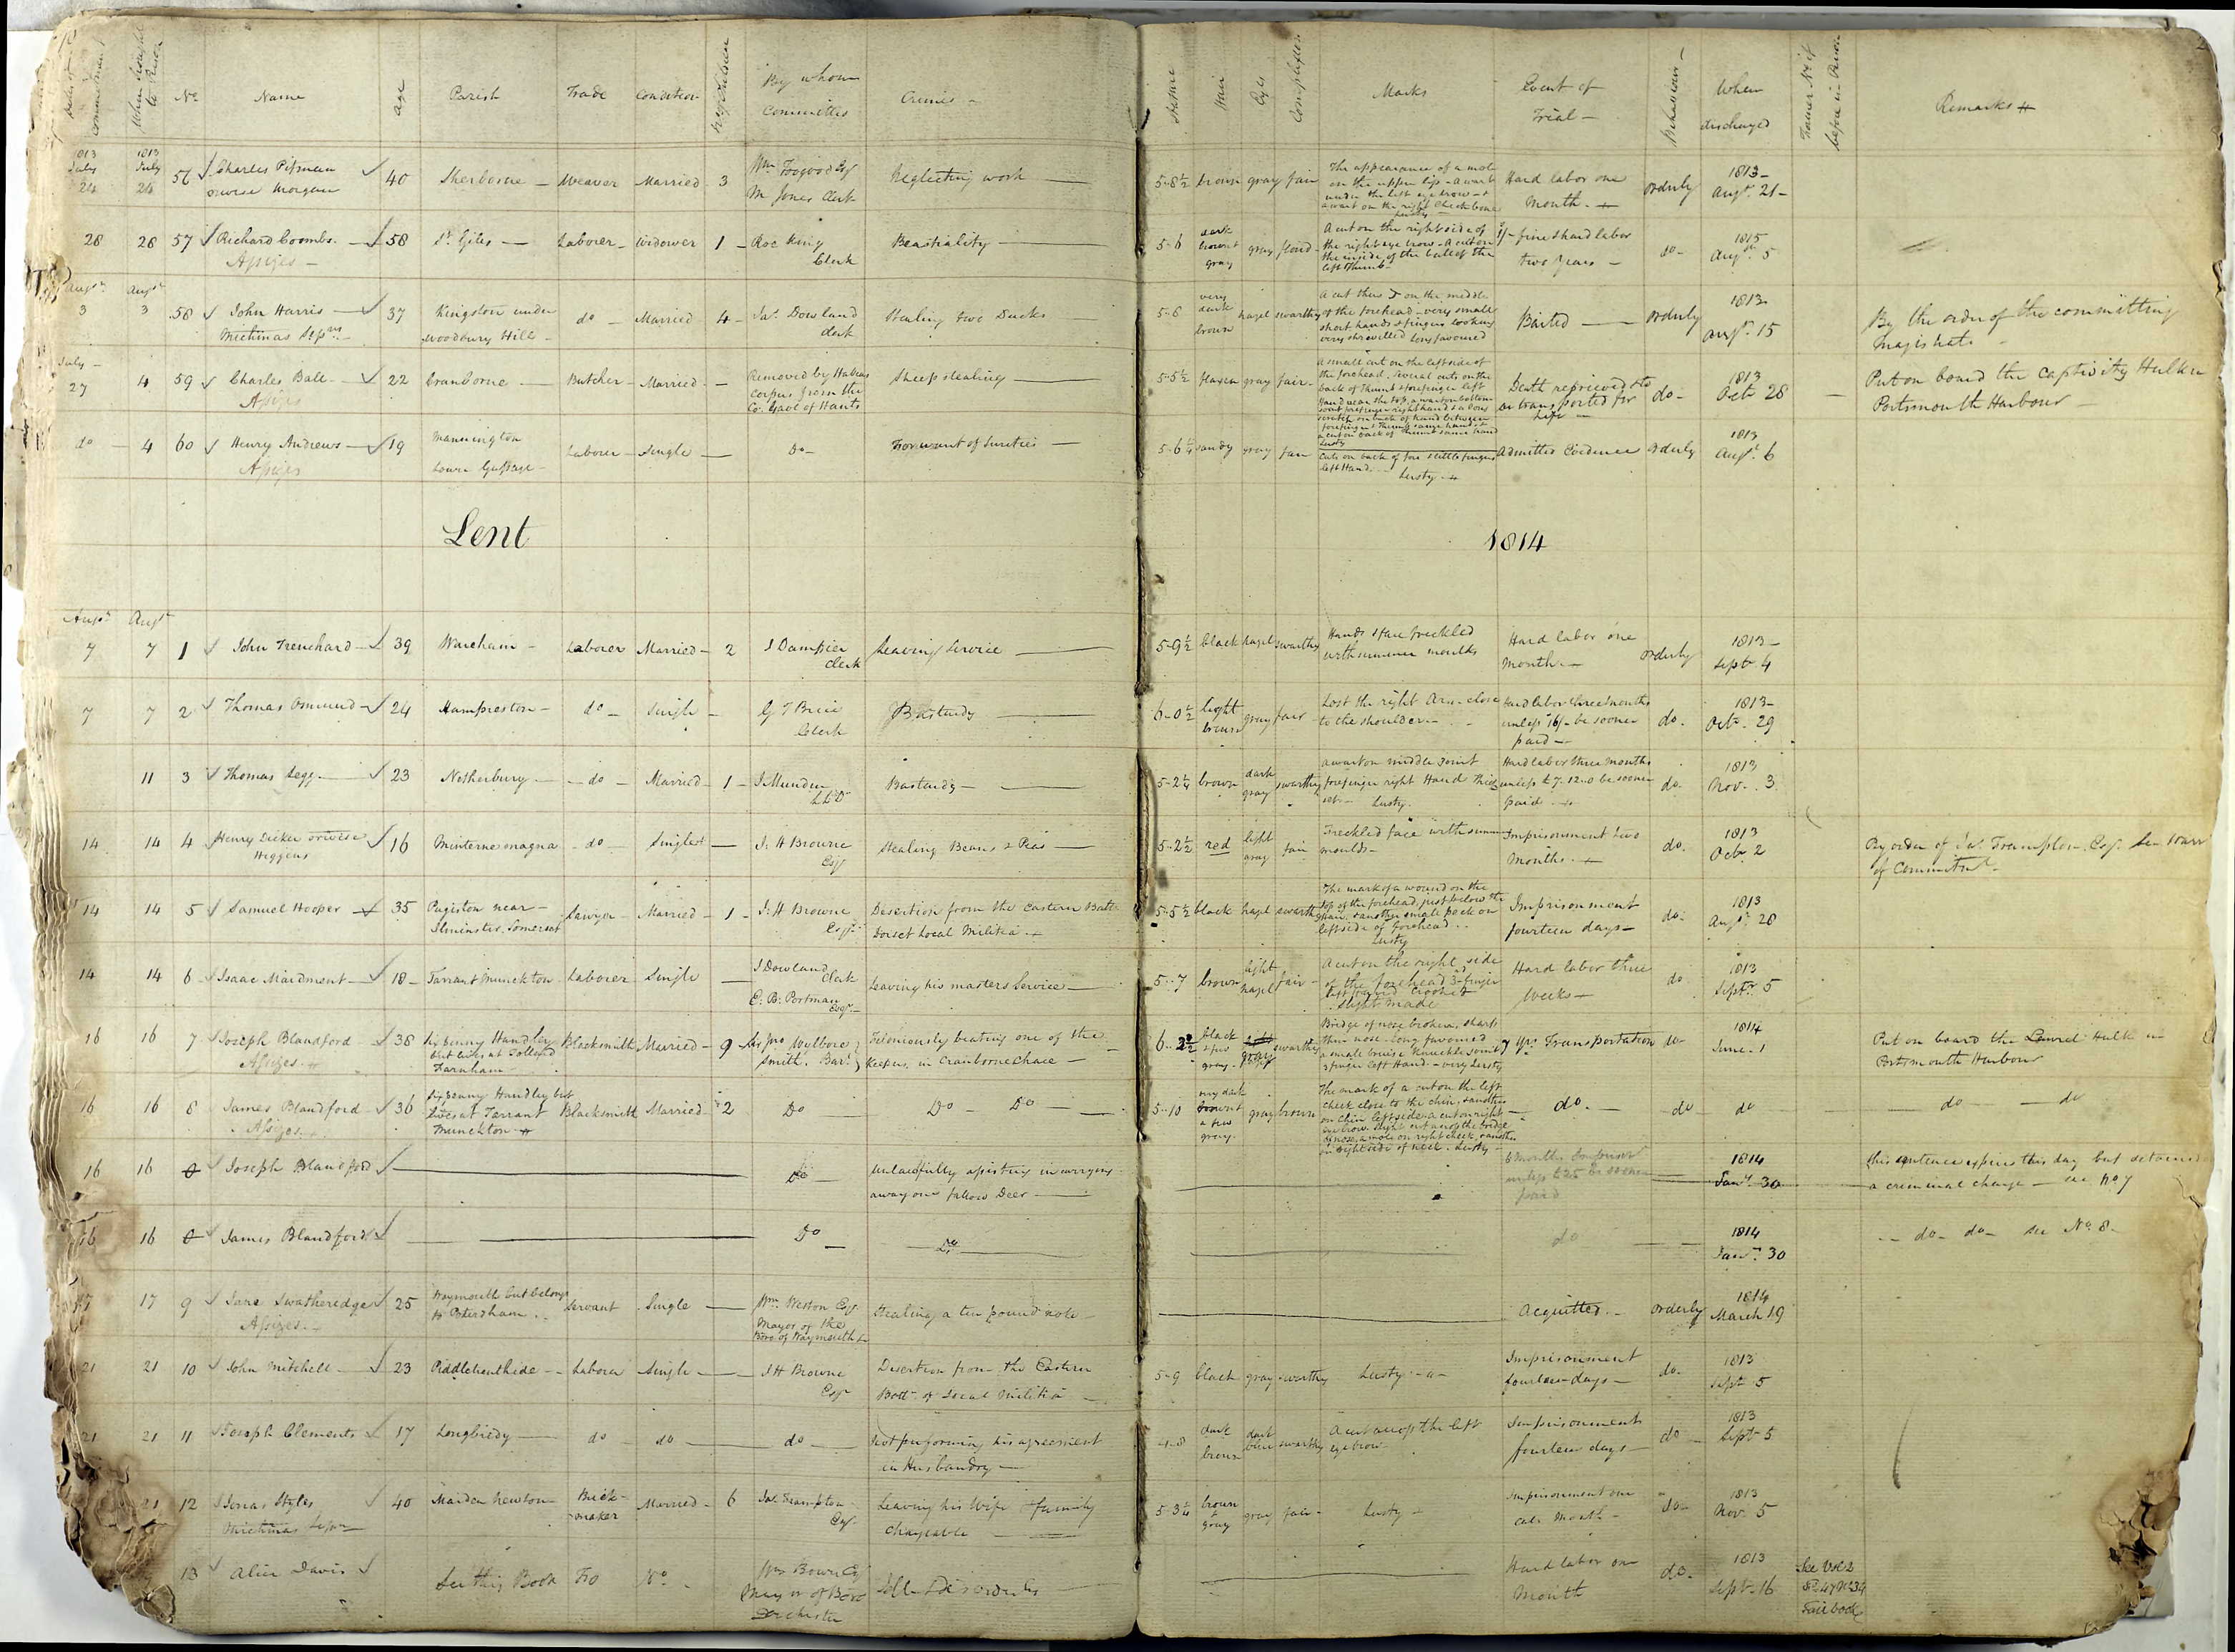 Date of Commitment | When brought to Prison | No | Name | age | Parish | Trade | Condition | No of Children | By whom Committed | Crimes | Stature | Hair | Eyes | Complexion | Marks | Event of Trial | Behaviour | When discharged | Former No if before in Prison | Remarks
1813 July 24 | 1813 July 24 | 56 | Charles Pitman orwise Morgan | 40 | Sherborne | Weaver | Married | 3 | Wm Toogood Esq M Jones Clerk | Neglecting work | 5-8½ | brown | gray | fair | The appearance of a mole on the upper lip - A wart under the left eye brow - & a wart on the right Cheek bone Lusty | Hard labor one Month | orderly | 1813 Augt 21
28 | 28 | 57 | Richard Coombs Assizes | 58 | St Giles | Laborer | Widower | 1 | Roe King Clerk | Beastiality | 5-6 | dark brown & gray | gray | florid | A cut on the right side of the right eye brow - A cut on the inside of the ball of the left Thumb | 1/- fine & hard labor two Years | do | 1815 Augt 5
Augt 3 | Augt 3 | 58 | John Harris Michmas Sessns | 37 | Kingston under Woodbury Hill | do | Married | 4 | Jas. Dowland clerk | Stealing two Ducks | 5-8 | very dark brown | hazel | swarthy | a cut thus on the middle of the forehead - very small short hands & fingers looking very shrivelled long favoured | Bailed | orderly | 1813 Augt 15 | By the order of the committing Magistrate
July 27 | 4 | 59 | Charles Ball Assizes | 22 | Cranborne | Butcher | Married | Removed by Habeas Corpus from the Co. Gaol of Hants | Sheep stealing | 5-5½ | flaxen | gray | fair | a small cut on the left side of the forehead, several cuts on the back of Thumb & forefinger left Hand near the top, a wart on bottom joint forefinger right hand & a long scratch on back of hand between forefinger & thumb same hand & a cut on back of Thumb same hand Lusty | Death reprieved to transported for Life | do | 1813 Octr 28 | Put on board the Captivity Hulk in Portsmouth Harbour
do | 4 | 60 | Henry Andrews Assizes | 19 | Mannington Lower Gussage | Laborer | Single | Do | For want of Sureties | 5-6¼ | sandy | gray | fair | Cuts on back of fore & little fingers left Hand Lusty | Admitted Evidence | orderly | 1813 Augt 6
Lent 1814
Augt 7 | Augt 7 | 1 | John Trenchard | 39 | Wareham | Laborer | Married | 2 | J Dampier Clerk | Leaving Service | 5-9½ | black | hazel | swarthy | Hands & face freckled with summer moulds | Hard labor one Month | orderly | 1813 Sept 4
7 | 7 | 2 | Thomas Osmund | 24 | Hampreston | do | Single | G T Brice Clerk | Bastardy | 6-0½ | light brown | gray | fair | Lost the right Arm close to the shoulder | Hard labor three months unless 16/- be sooner paid | do | 1813 Octr 29
11 | 3 | Thomas Legg | 23 | Netherbury | do | Married | 1 | J Munden LLD | Bastardy | 5-2¼ | brown | dark gray | swarthy | a wart on middle joint forefinger right Hand thick set Lusty | Hard labor three months unless £7.12.0 be sooner paid | do | 1813 Nov. 3
14 | 14 | 4 | Henry Dicker orwise Higgens | 16 | Minterne magna | do | Single | J. H Browne Esqr | Stealing Beans & Peas | 5-2½ | red | light gray | fair | Freckled face with summer moulds | Imprisonment two Months | do | 1813 Octr 2 | By order of Jas. Frampton Esqr. See Warrt of Commitmt
14 | 14 | 5 | Samuel Hooper | 35 | Puginston near Ilminster, Somerset | Sawyer | Married | 1 | J. H Browne Esqr | Desertion from the Eastern Batt Dorset Local Militia | 5-5½ | black | hazel | swarthy | The mark of a wound on the top of the forehead, just below the hair, & another small pock on left side of forehead Lusty | Imprisonment fourteen days | do | 1813 Augt 28
14 | 14 | 6 | Isaac Maidment | 18 | Tarrant Munckton | Laborer | Single | J Dowland Clerk E. B. Portman Esqr | Leaving his masters Service | 5-7 | brown | light hazel | fair | A cut on the right side of the forehead 3d finger left hand crooked Slight made | Hard labor three Weeks | do | 1813 Septr 5
16 | 16 | 7 | Joseph Blandford Assizes | 38 | Sixpenny Handley but lives at Tollard Farnham | Blacksmith | Married | 9 | Wylbore Smith Bart | Feloniously beating one of the Keepers in Cranborne Chace | black & few gray | gray | swarthy | Bridge of nose broken, sharp thin nose - long favoured a small bruise Knuckle joint 3 finger left Hand - very Lusty | 7 Yrs Transportation | do | 1814 June 1 | Put on board the Laurel Hulk in Portsmouth Harbour
16 | 16 | 8 | James Blandford Assizes | 36 | Sixpenny Handley but lives at Tarrant Munckton | Blacksmith | Married | 2 | Do | Do Do | 5-10 | very dark brown & a few gray | gray | brown | The mark of a cut on the left cheek close to the chin, & another on Chin left side - a cut on right eye brow. Slight cut across the bridge of nose, a mole on right cheek & another on right side of neck. Lusty | do | do | do | do do
16 | 16 | 0 | Joseph Blandford | Do | Unlawfully assisting in carrying away one fallow Deer | 6 months Imprisont unless £25 be sooner paid | 1814 Jany 30 | his sentence expires this day but detained a criminal charge - see No 7
16 | 16 | 0 | James Blandford | Do | Do | do | 1814 Jany 30 | do do see No. 8
17 | 17 | 9 | Jane Swatheredge Assizes | 25 | Weymouth but belongs to | Servant | Single | Wm. Weston Esq. Mayor of the Boro of Weymouth | Stealing a ten pound note | Acquitted | orderly | 1814 March 19
21 | 21 | 10 | John Mitchell | 23 | Piddletrenthide | Laborer | Single | J H Browne Esqr | Desertion from the Eastern Batt. of Local Militia | 5-9 | black | gray | swarthy | Lusty | Imprisonment fourteen days | do | 1813 Sept 5
21 | 21 | 11 | Joseph Clements | 17 | Longbredy | do | do | do | Not performing his agreement in Husbandry | 4-8 | dark brown | dark blue | swarthy | A cut across the left eyebrow | Imprisonment fourteen days | do | 1813 Sept 5
21 | 12 | Jonas Styles Michmas Sessn | 40 | Maiden Newton | Brick maker | Married | 6 | Jas. Frampton Esqr | Leaving his Wife & family chargeable | 5-3¼ | brown & gray | gray | fair | Lusty | Imprisonment one cals Month | do | 1813 Nov. 5
13 | Alice Davis | See this Book | Fo | No | Wm Bower Esq Mayor of Boro Dorchester | Idle & disorderly | Hard labor one Month | do | 1813 Sept 16 | See Vol 2 Fo 47 No 34 Fair book